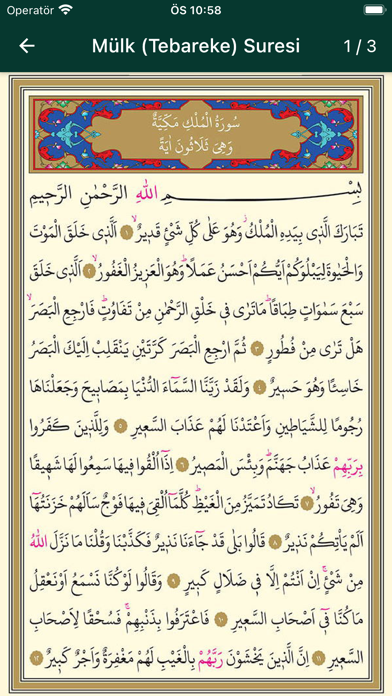 Operatör ÖS 10:58
Mülk (Tebareke) Suresi 1 / 3
سُورَةُ الْمُلْكِ مَكِّيَّةٌ
وَهِيَ ثَلَاثُونَ اٰيَةً
بِسْــــمِ اللّٰهِ الرَّحْمٰنِ الرَّحٖيمِ
تَبَارَكَ الَّذٖي بِيَدِهِ الْمُلْكُۘ وَهُوَ عَلٰى كُلِّ شَيْءٍ قَدٖيرٌۙ ١ اَلَّذٖي خَلَقَ الْمَوْتَ
وَالْحَيٰوةَ لِيَبْلُوَكُمْ اَيُّكُمْ اَحْسَنُ عَمَلًاؕ وَهُوَ الْعَزٖيزُ الْغَفُورُۙ ٢ اَلَّذٖي خَلَقَ
سَبْعَ سَمٰوَاتٍ طِبَاقًاؕ مَاتَرٰى فٖي خَلْقِ الرَّحْمٰنِ مِنْ تَفَاوُتٍؕ فَارْجِعِ الْبَصَرَۙ
هَلْ تَرٰى مِنْ فُطُورٍ ٣ ثُمَّ ارْجِعِ الْبَصَرَ كَرَّتَيْنِ يَنْقَلِبْ اِلَيْكَ الْبَصَرُ
خَاسِئًا وَهُوَ حَسٖيرٌ ٤ وَلَقَدْ زَيَّنَّا السَّمَٓاءَ الدُّنْيَا بِمَصَابٖيحَ وَجَعَلْنَاهَا
رُجُومًا لِلشَّيَاطٖينِ وَاَعْتَدْنَا لَهُمْ عَذَابَ السَّعٖيرِ ٥ وَلِلَّذٖينَ كَفَرُوا
بِرَبِّهِمْ عَذَابُ جَهَنَّمَؕ وَبِئْسَ الْمَصٖيرُ ٦ اِذَٓا اُلْقُوا فٖيهَا سَمِعُوا لَهَا شَهٖيقًا
وَهِيَ تَفُورُۙ ٧ تَكَادُ تَمَيَّزُ مِنَ الْغَيْظِؕ كُلَّمَٓا اُلْقِيَ فٖيهَا فَوْجٌ سَاَلَهُمْ خَزَنَتُهَٓا
اَلَمْ يَأْتِكُمْ نَذٖيرٌ ٨ قَالُوا بَلٰى قَدْ جَٓاءَنَا نَذٖيرٌ فَكَذَّبْنَا وَقُلْنَا مَا نَزَّلَ اللّٰهُ
مِنْ شَيْءٍۚ اِنْ اَنْتُمْ اِلَّا فٖي ضَلَالٍ كَبٖيرٍ ٩ وَقَالُوا لَوْكُنَّا نَسْمَعُ اَوْنَعْقِلُ
مَاكُنَّا فٖٓي اَصْحَابِ السَّعٖيرِ ١٠ فَاعْتَرَفُوا بِذَنْبِهِمْۚ فَسُحْقًا لِاَصْحَابِ
السَّعٖيرِ ١١ اِنَّ الَّذٖينَ يَخْشَوْنَ رَبَّهُمْ بِالْغَيْبِ لَهُمْ مَغْفِرَةٌ وَاَجْرٌ كَبٖيرٌ ١٢